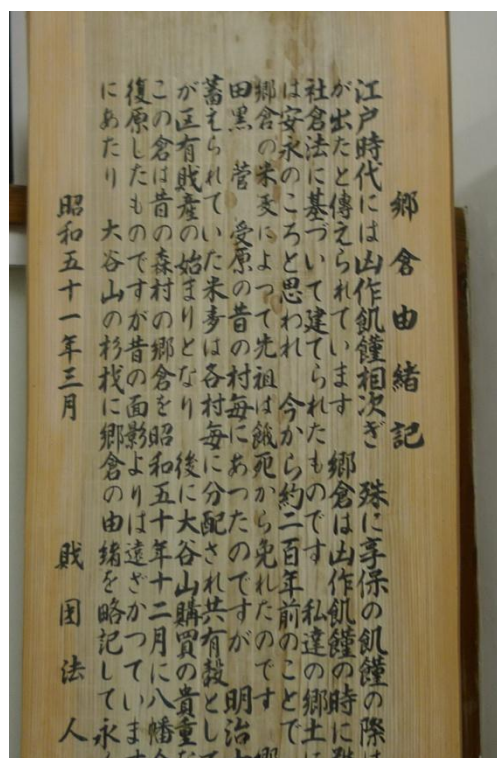 郷倉由緒記
江戸時代には凶作飢饉相次ぎ 殊に享保の飢饉の際は
が出たと傳えられています 郷倉は凶作飢饉の時に
社倉法に基づいて建てられたものです 私達の郷土に
は安永のころと思われ 今から約二百年前のことで
郷倉の米麦によって先祖は餓死から免れたのです
田黒 菅 受原の昔の村毎にあつたのですが 明治
蓄えられていた米麦は各村毎に分配され共有穀として
が区有財産の始まりとなり 後に大谷山購買の貴重な
この倉は昔の森村の郷倉を昭和五十年十二月に八幡
復原したものですが昔の面影よりは遠ざかつています
にあたり 大谷山の杉材に郷倉の由緒を略記して永
昭和五十一年三月 財団法人